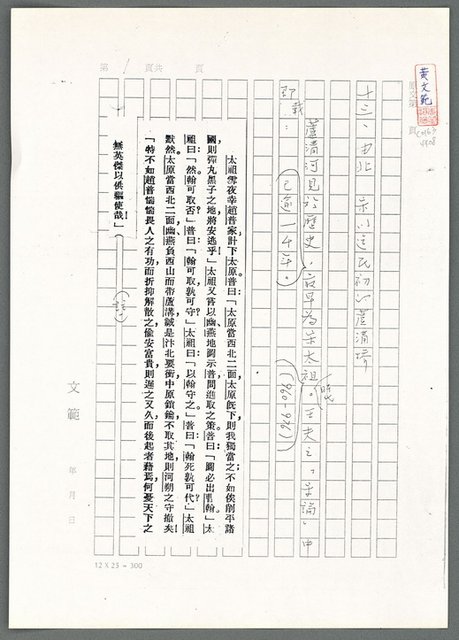 第 1 頁共 頁
黃文範
十三、由北宋以至民初的蘆溝橋
蘆溝河見於歷史,最早為宋太祖時代。王夫之「宋論」中
(960-976)
已逾一千年。
即載:
太祖雪夜幸趙普家計下太原普曰:「太原當西北二面,太原旣下,則我獨當之;不如俟削平諸
國,則彈丸黑子之地,將安逃乎!」太祖又嘗以幽、燕地圖示普,問進取之策。普曰:「圖必出曹翰。」太
祖曰:「然翰可取否?」普曰:「翰可取,孰可守?」太祖曰:「以翰守之。」普曰:「翰死孰可代?」太祖
默然。太原當西北二面,幽、燕負西山而帶蘆溝,誠是汴北要衝,中原鎖鑰;不取其地,則河朔之守撤矣!
「特不如趙普惴惴畏人之有功,而折抑解散之,偷安富貴,則迤之又久,而後起者藉焉,何憂天下之
無英傑以供驅使哉!」
(註一)
文範 年月日
12 X 25 = 300